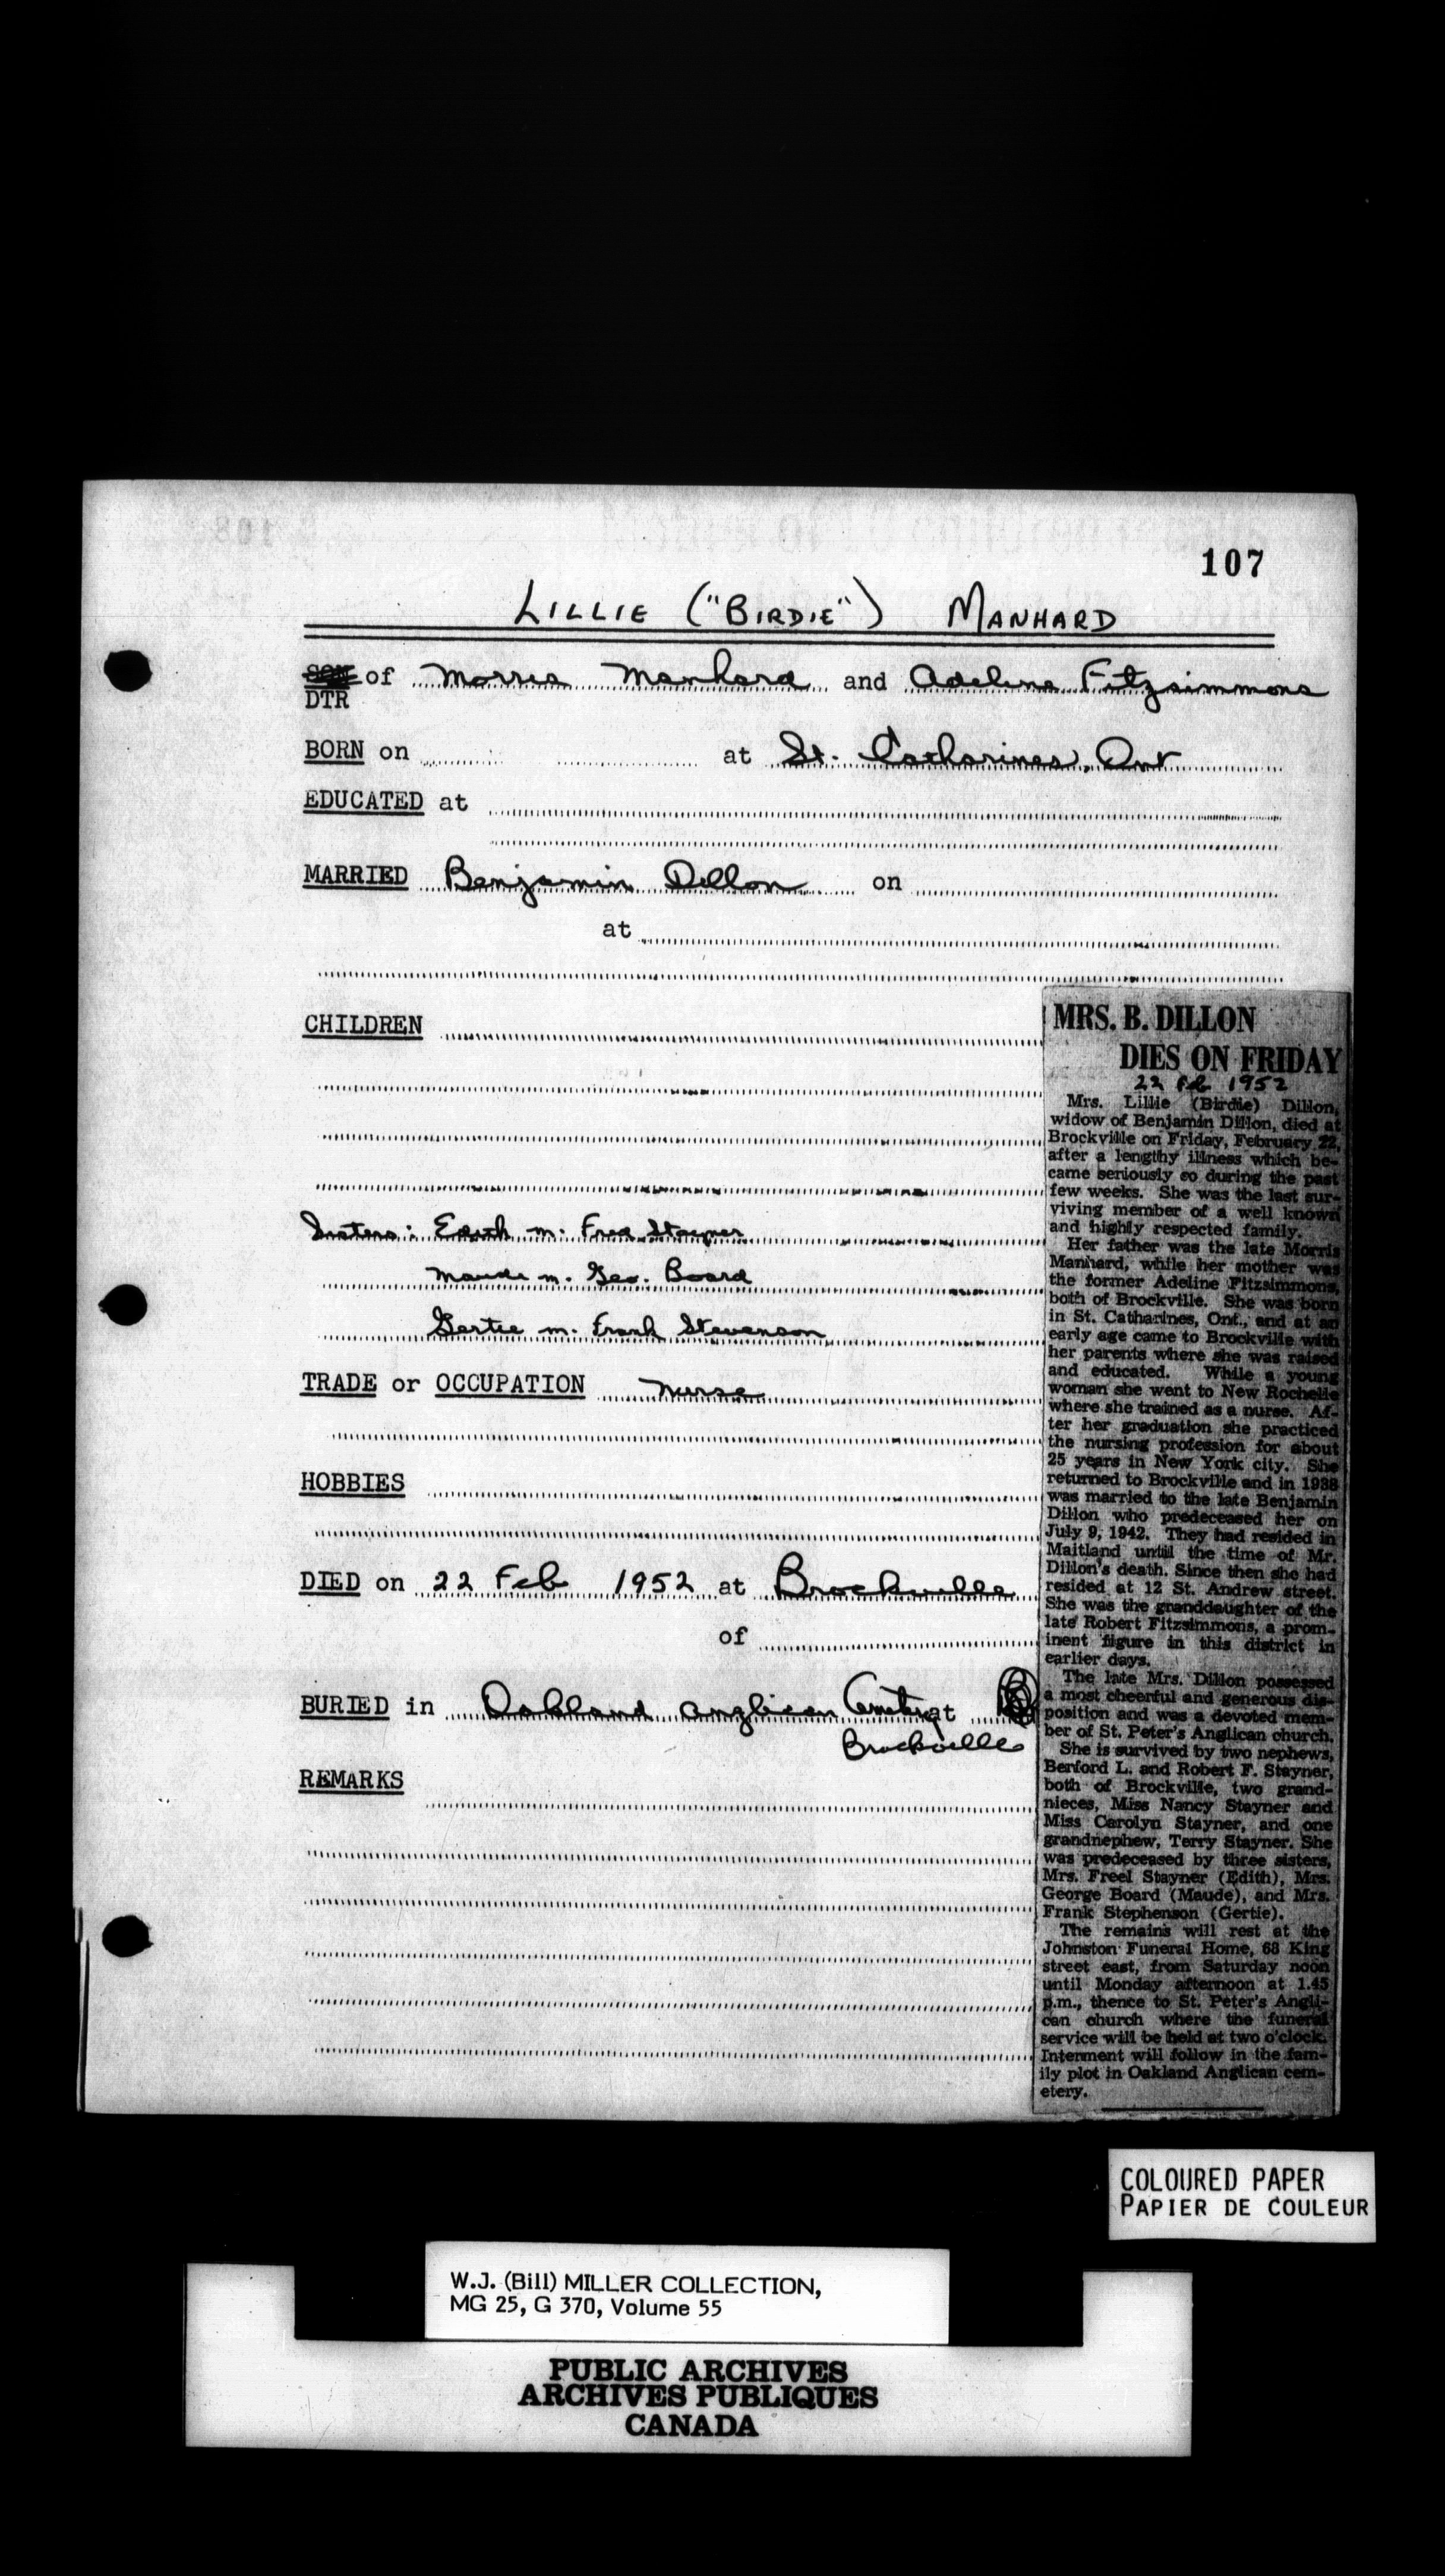 107
LILLIE ("BIRDIE") MANHARD
SON of Morris Manhard and Adeline Fitzsimmons
DTR
BORN on at St. Catharines, Ont
EDUCATED at
MARRIED Benjamin Dillon on
at
CHILDREN
Sisters: Edith m. Fred Stayner
Maude m. Geo. Board
Gertie m. Frank Stevenson
TRADE or OCCUPATION Nurse
HOBBIES
DIED on 22 Feb 1952 at Brockville
of
BURIED in Oakland Anglican Cemetery at
Brockville
REMARKS
MRS. B. DILLON
DIES ON FRIDAY
22 Feb 1952
Mrs. Lillie (Birdie) Dillon,
widow of Benjamin Dillon, died at
Brockville on Friday, February 22,
after a lengthy illness which be-
came seriously so during the past
few weeks. She was the last sur-
viving member of a well known
and highly respected family.
Her father was the late Morris
Manhard, while her mother was
the former Adeline Fitzsimmons,
both of Brockville. She was born
in St. Catharines, Ont., and at an
early age came to Brockville with
her parents where she was raised
and educated. While a young
woman she went to New Rochelle
where she trained as a nurse. Af-
ter her graduation she practiced
the nursing profession for about
25 years in New York city. She
returned to Brockville and in 1938
was married to the late Benjamin
Dillon who predeceased her on
July 9, 1942. They had resided in
Maitland until the time of Mr.
Dillon's death. Since then she had
resided at 12 St. Andrew street.
She was the granddaughter of the
late Robert Fitzsimmons, a prom-
inent figure in this district in
earlier days.
The late Mrs. Dillon possessed
a most cheerful and generous dis-
position and was a devoted mem-
ber of St. Peter's Anglican church.
She is survived by two nephews,
Benford L. and Robert F. Stayner,
both of Brockville, two grand-
nieces, Miss Nancy Stayner and
Miss Carolyn Stayner, and one
grandnephew, Terry Stayner. She
was predeceased by three sisters,
Mrs. Freel Stayner (Edith), Mrs.
George Board (Maude), and Mrs.
Frank Stephenson (Gertie).
The remains will rest at the
Johnston Funeral Home, 68 King
street east, from Saturday noon
until Monday afternoon at 1.45
p.m., thence to St. Peter's Angli-
can church where the funeral
service will be held at two o'clock.
Interment will follow in the fam-
ily plot in Oakland Anglican cem-
etery.
COLOURED PAPER
PAPIER DE COULEUR
W.J. (Bill) MILLER COLLECTION,
MG 25, G 370, Volume 55
PUBLIC ARCHIVES
ARCHIVES PUBLIQUES
CANADA